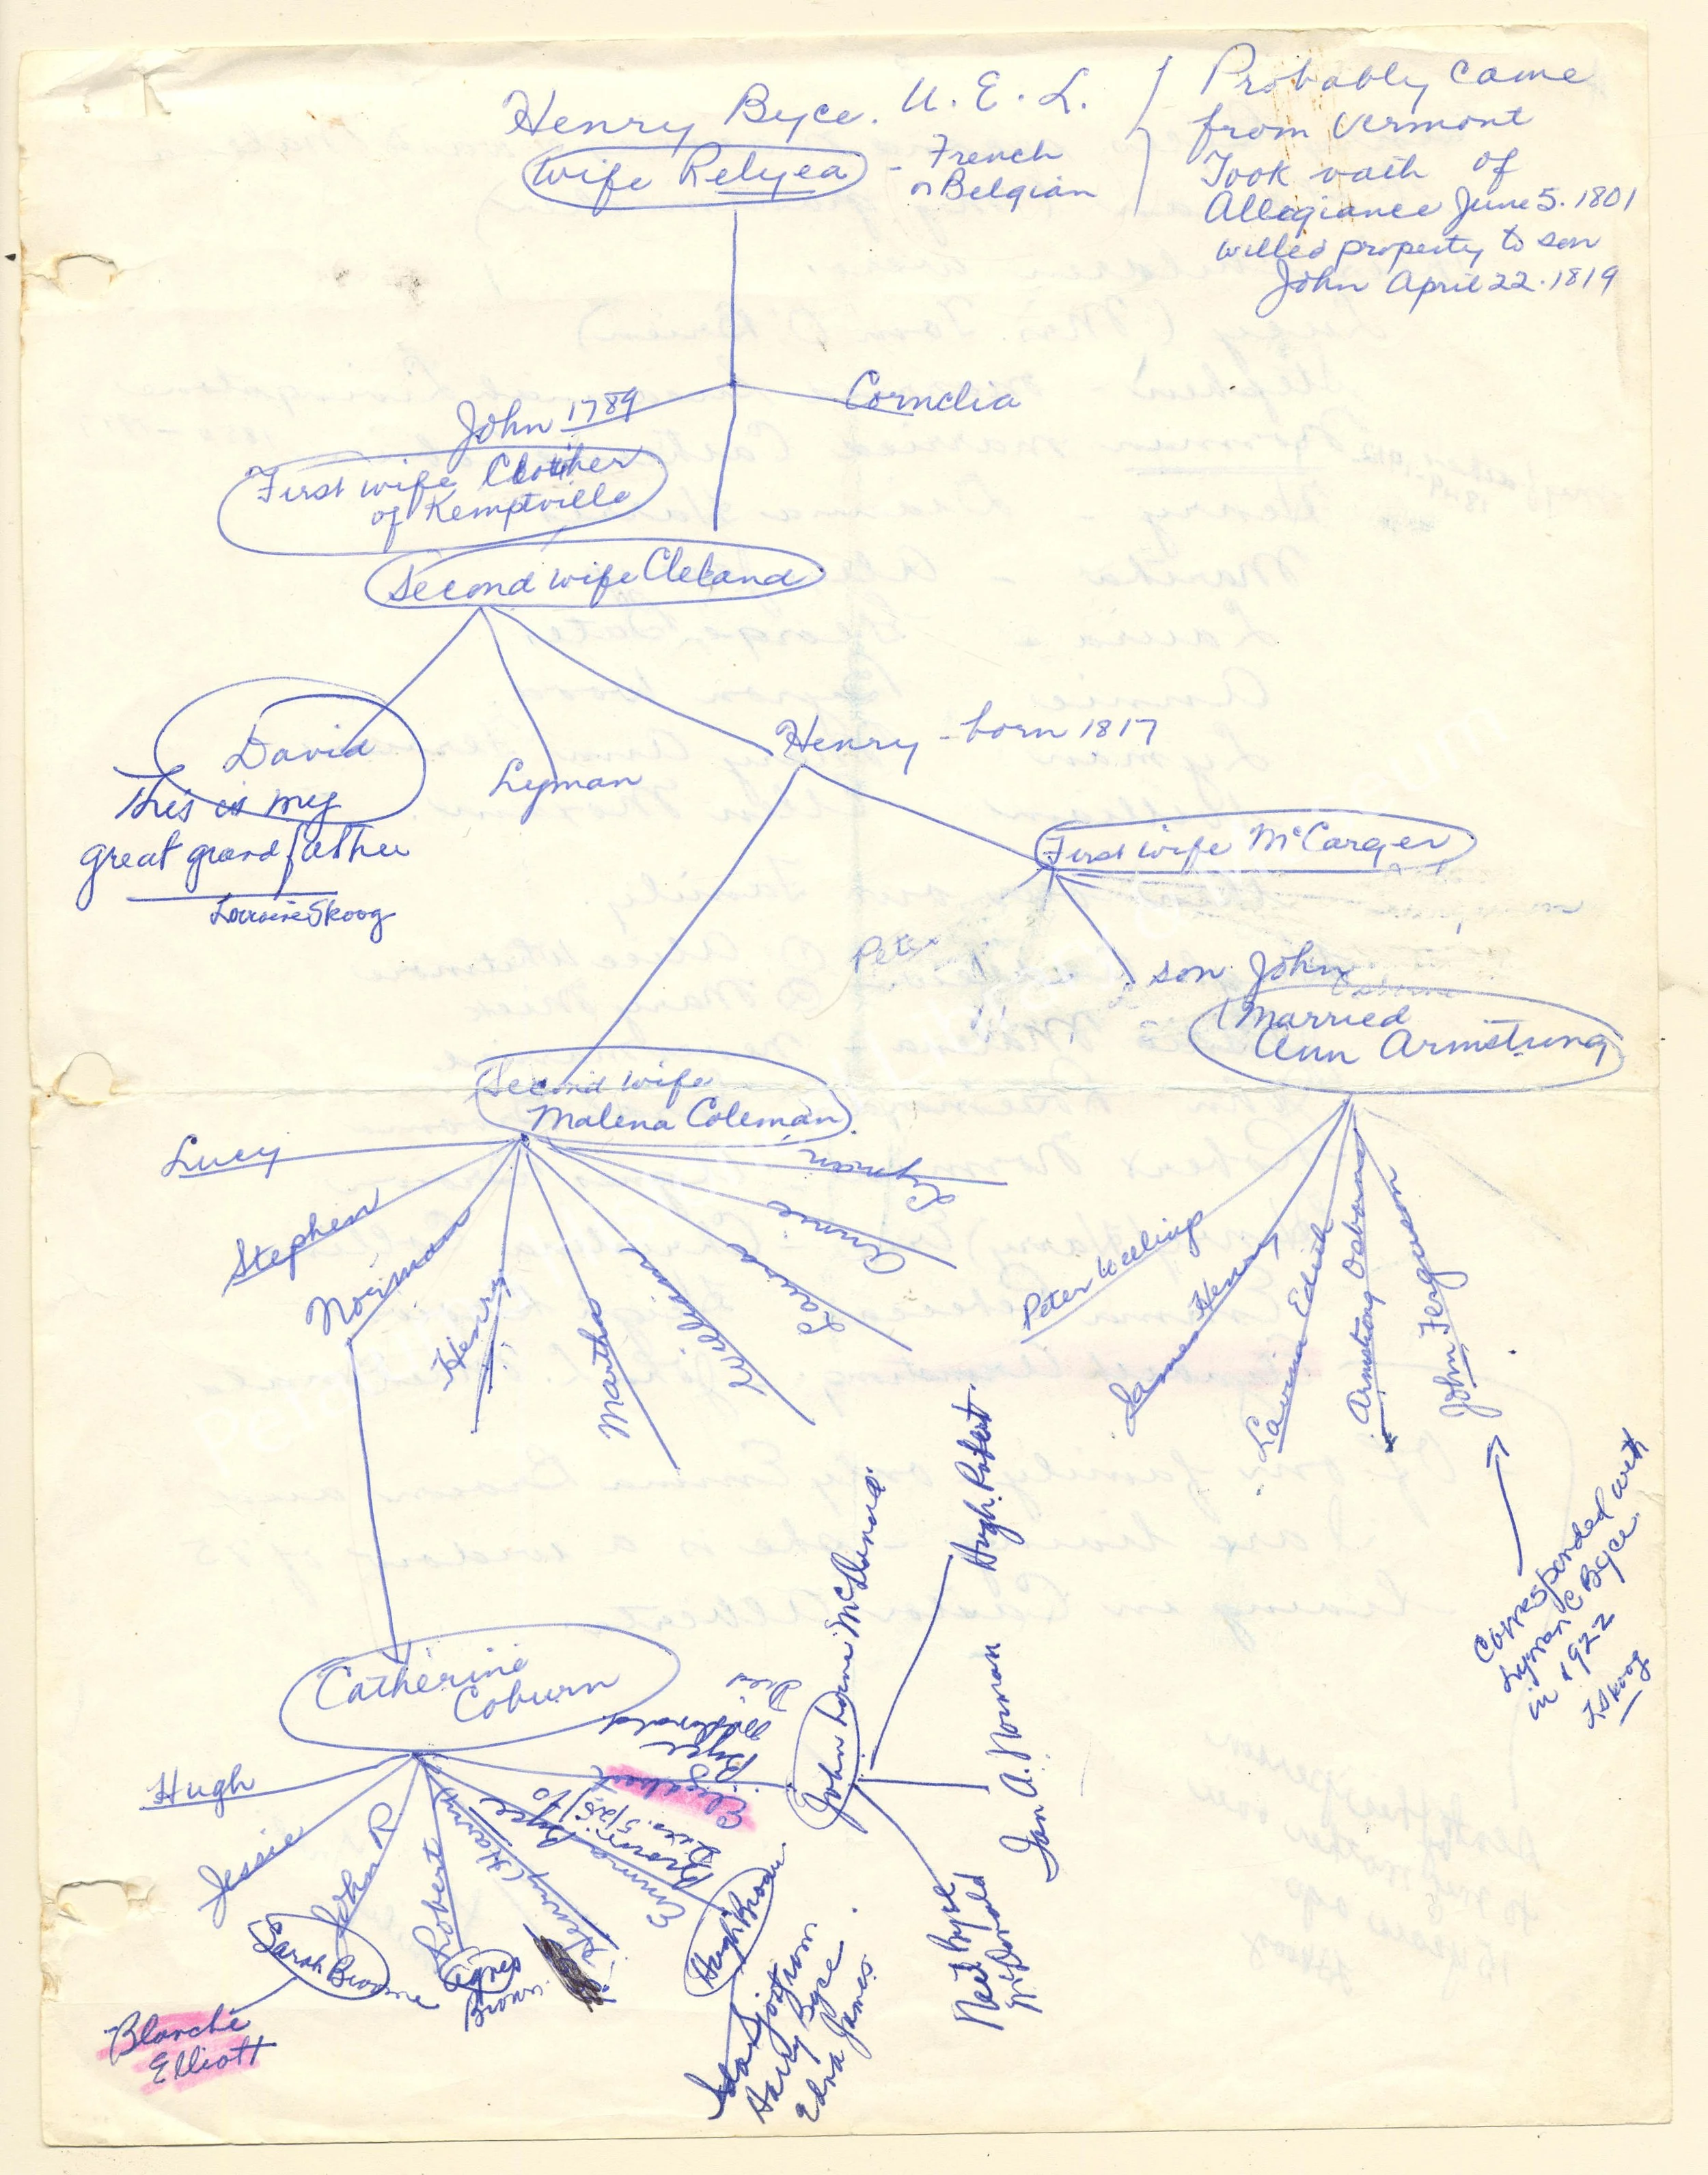 Henry Byce. U. E. L.
wife Relyea - French
or Belgian
Probably came
from Vermont
Took oath of
Allegiance June 5. 1801
willed property to son
John April 22. 1819
John 1789
Cornelia
First wife Clother
of Kemptville
Second wife Cleland
David
This is my
great grandfather
Lorraine Skoog
Lyman
Henry - born 1817
First wife McCarger
Peter
son John
Married
Ann Armstrong
Second wife
Malena Coleman
Lucy
Stephen
Norman
Henry
Martha
William
Laura
Annie
Lyman
Peter Welling
James Henry
Lavina Edith
Armstrong Osborne
John Ferguson
Corresponded with
Lyman C Byce
in 1922
L Skoog
Catherine
Coburn
Hugh
Jessie
John R
Sarah Browne
Blanche
Elliott
Robert
Agnes
Brown
Henry (Harry)
Emma Byce
Brown
Hugh Brown
Ida
Harry Byce
Edna James
Elizabeth
Byce
McDonald
Died
John Lorne McDonald
Hugh Robert
Ian A. Norman
Neil Byce
McDonald